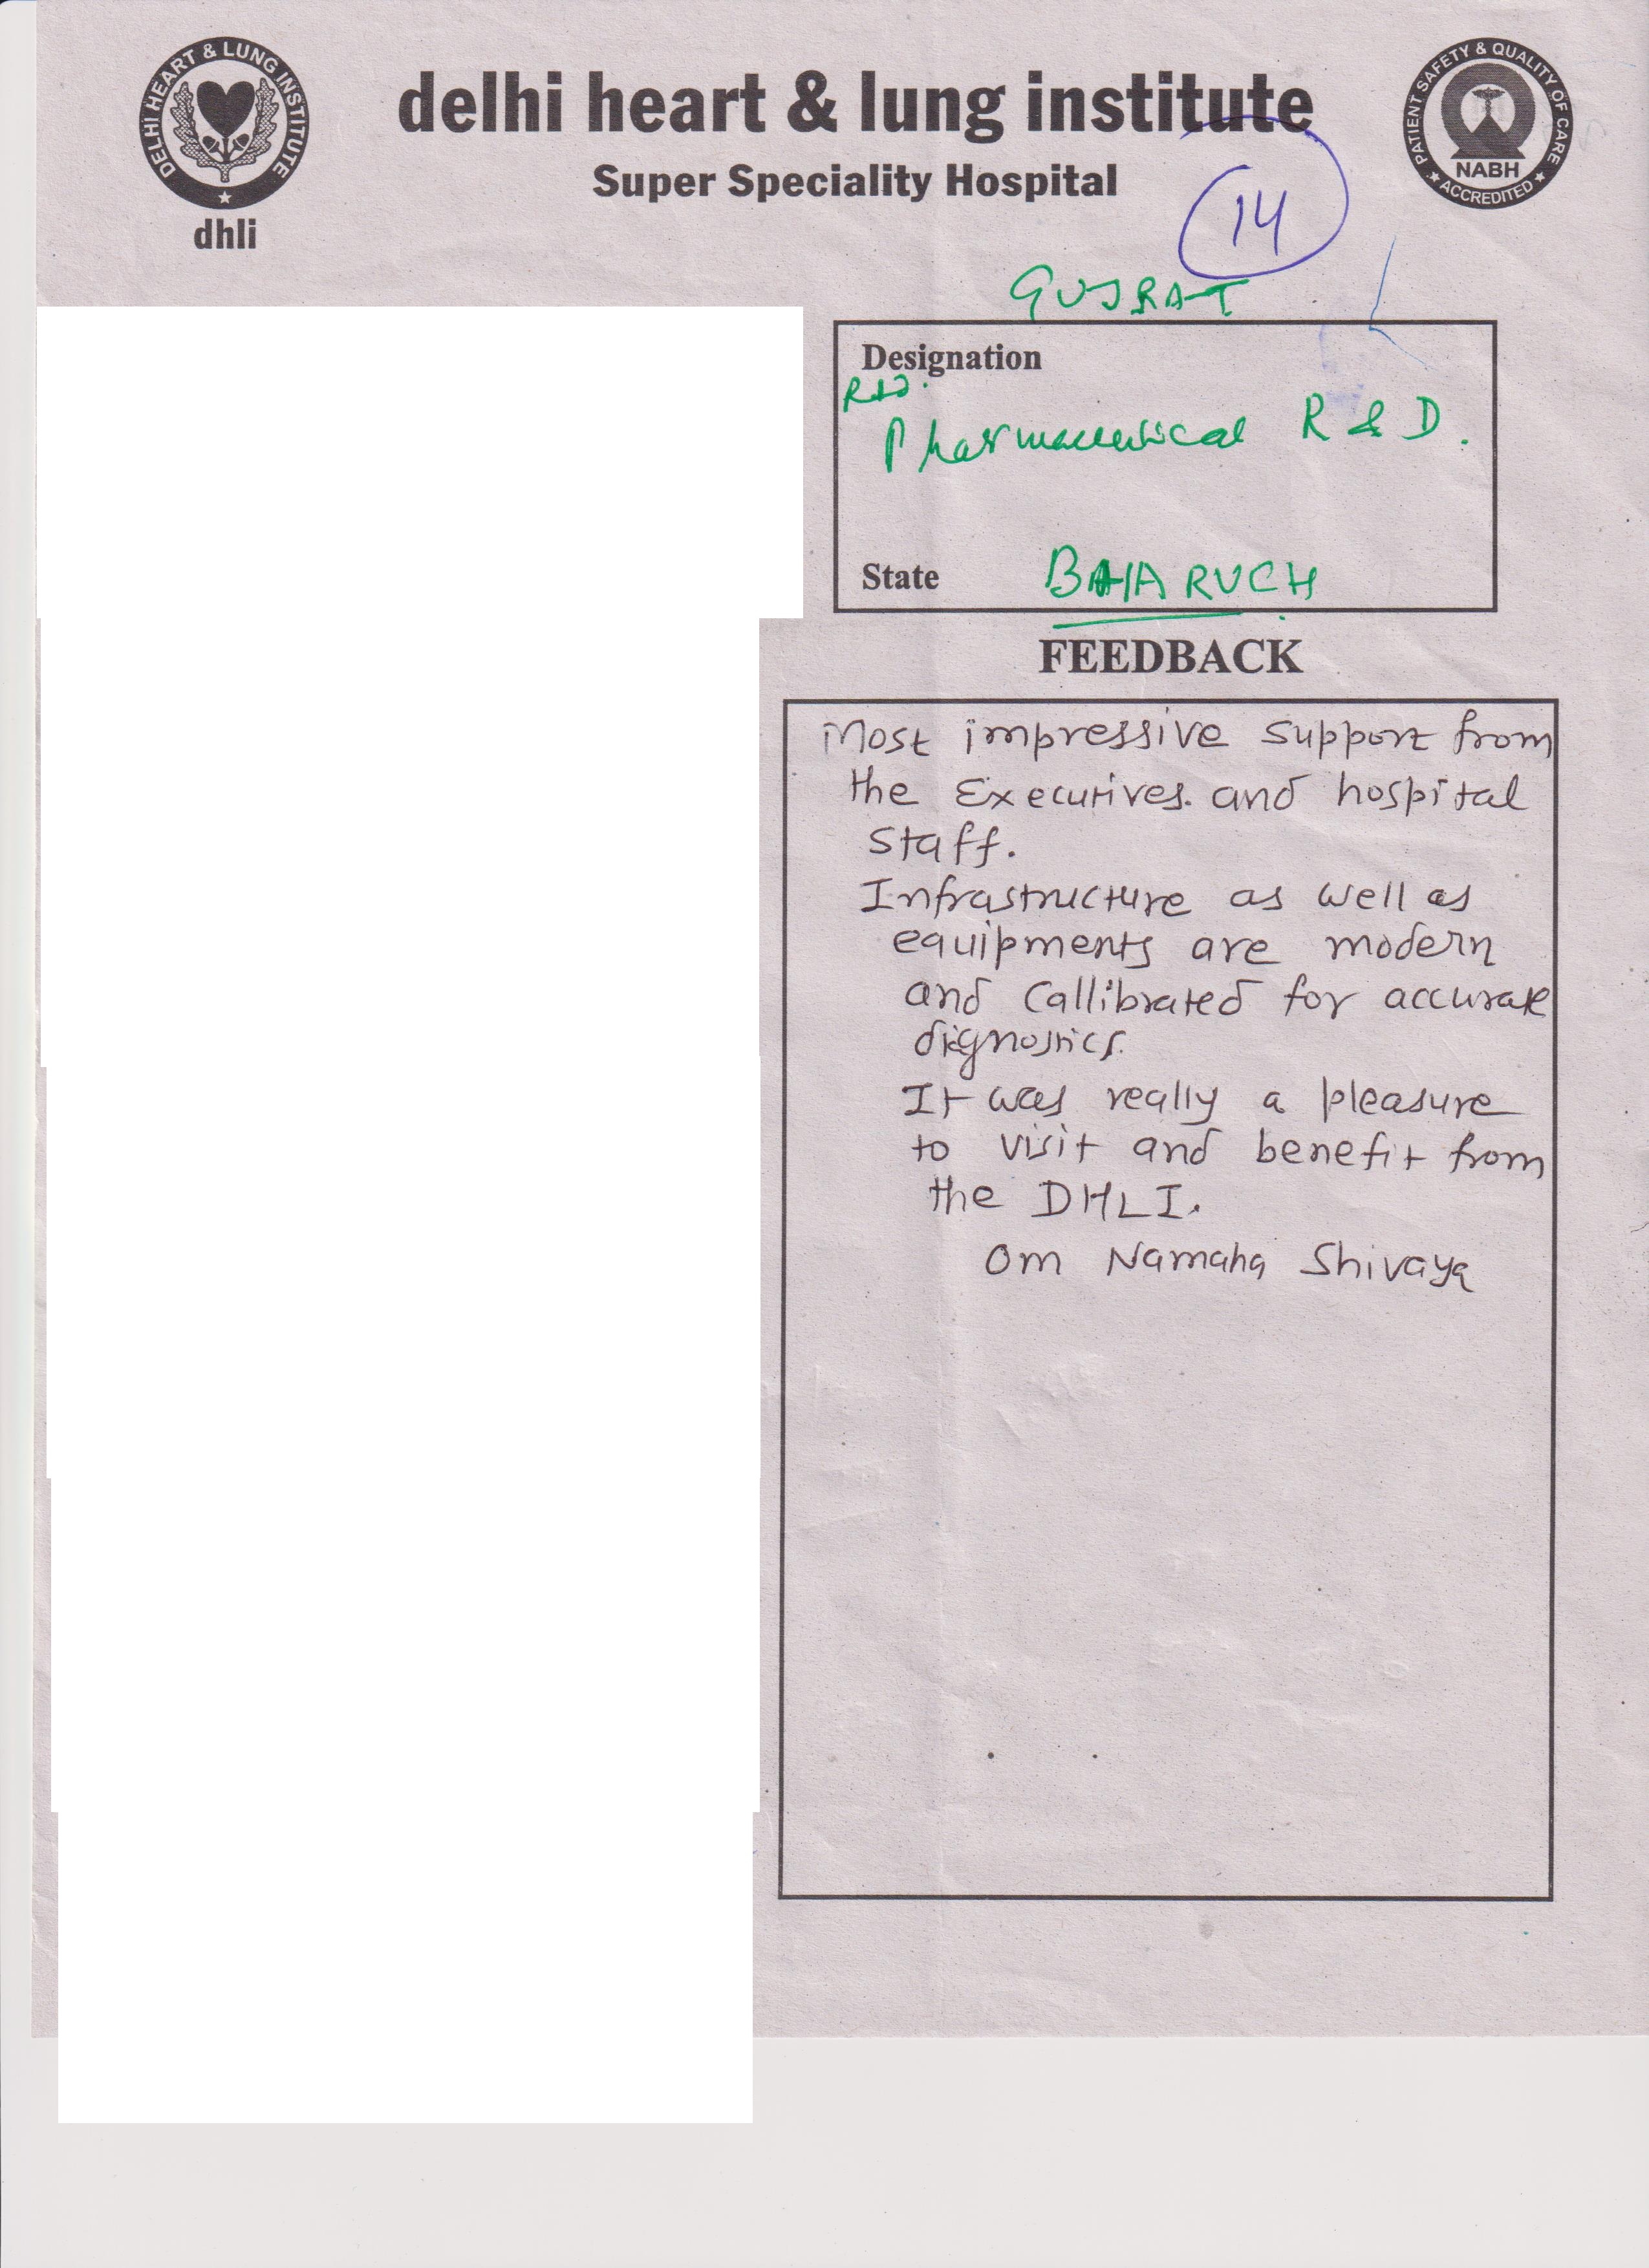 DELHI HEART & LUNG INSTITUTE
dhli
delhi heart & lung institute
Super Speciality Hospital
PATIENT SAFETY & QUALITY OF CARE
NABH
ACCREDITED
14
GUJRAT
Designation
Pharmaceutical R & D.
State BHARUCH
FEEDBACK
Most impressive support from
the Executives. and hospital
staff.
Infrastructure as well as
equipments are modern
and Callibrated for accurate
dignostics.
It was really a pleasure
to visit and benefit from
the DHLI.
Om Namaha Shivaya